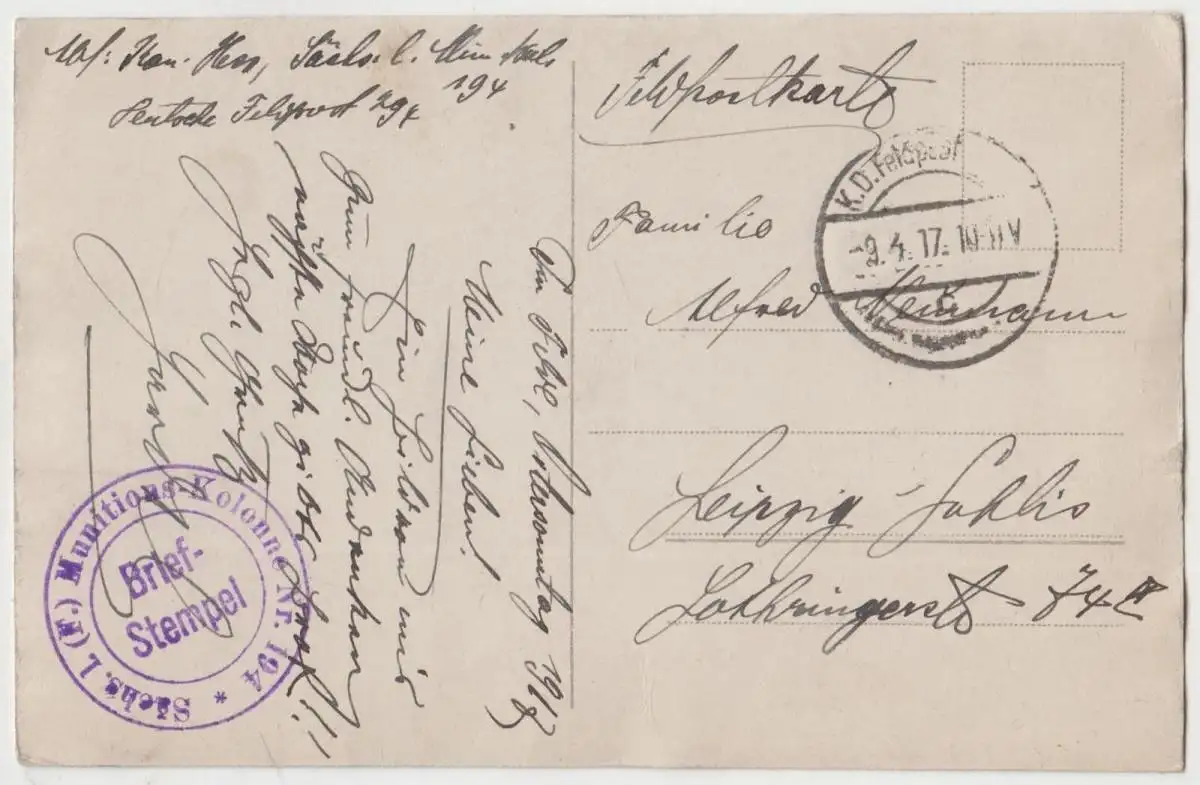 Abs: Kan. Hess, Sächs. l. Mun. Kol.
194
Deutsche Feldpost 294
Im Felde, Ostersonntag 1917
Meine Lieben!
Ein Bildchen mir
zum freundl. Andenken
nächste Woche gibts
Herzl. Grüße
Feldpostkarte
Familie
Alfred Neumann
Leipzig Gohlis
Lothringerstr 74 II
K.D. Feldpost
-9.4.17. 10-11V
Sächs. l. (F.) Munitions-Kolonne Nr. 194 *
Brief-
Stempel